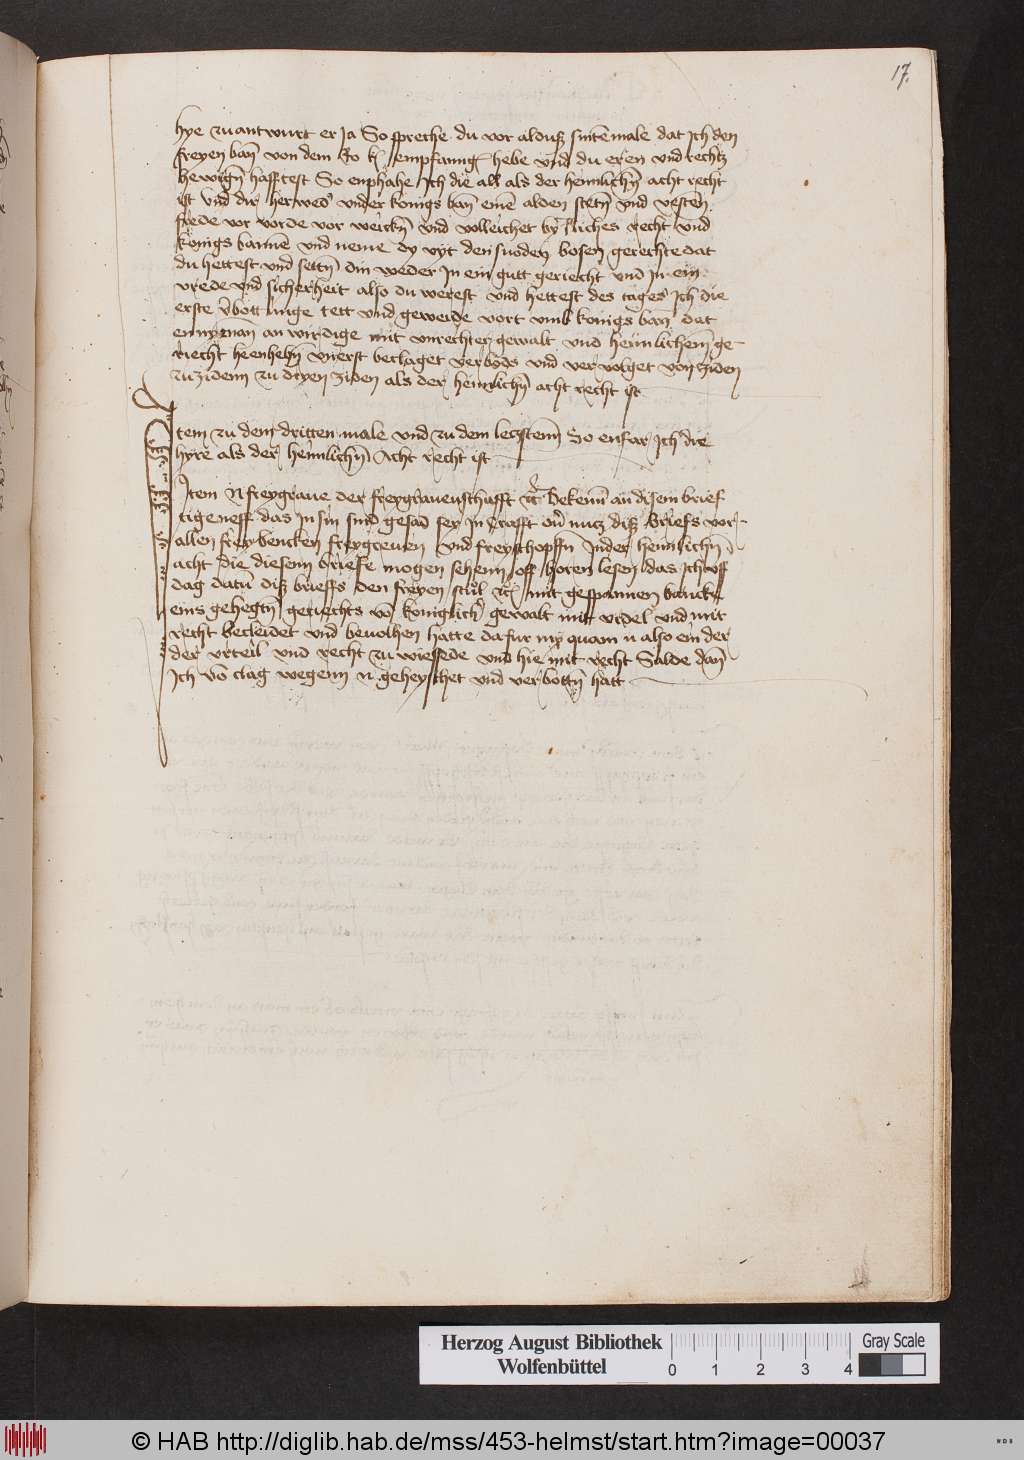 17.
hye zu antwurt er Ja So spreche du vor aldusz sintemale dat ich den
freyen ban von dem Ro k empfang hebe und du eren und rechtz
hafftest So enphahe Ich die all als der heimlichn acht recht
ist vnd dir vnder konigs ban eine alden steten vnd vesten
frede vor vorde vor werckn vnd volleichet liches recht vnd
konigs banne vnd neme dy vyt den bosen gerechte dat
du hettest vnd settn din weder In ein gutt geriecht vnd In ein
vrede vnd sicherheit also du werest vnd hettest des tages Ich die
erste vbott tett vnd geweide vort vmb konigs ban dat
man an wirdige mit vnrechter gewalt vnd heimlichem ge-
riecht vnerst beclaget verbods vnd vervolget von ziden
zu zidenn zu dryen ziden als der heimlichn acht recht ist
Item zu dem dritten male vnd zu dem leczstenn So enfar Ich die
hyre als der heimlichn Acht recht ist
Item N freygraue der freygrauenschafft etc Bekenn an disem brief
das In sin sind In crafft vn nucz disz Briefs vor
allen freybencken freygreuen vnd freyschopffn In der heimlichn
acht die diesenn briefe mogen sehenn off horen lesen das Ich vff
dag datu disz brieffs den freyen stul etc mit gespannen banck
eins gehegtn geriechts vo koniglich gewalt mit vrdel vnd mit
recht becleidet vnd beuolhen hatte da fur my quam n also ein der
der vrteil vnd recht zu wiessede vnd hie mit recht Salde dan
Ich vo clag wegenn n geheyschet vnd verbottn hatt
Herzog August Bibliothek
Wolfenbüttel
0 1 2 3 4
Gray Scale
© HAB http://diglib.hab.de/mss/453-helmst/start.htm?image=00037